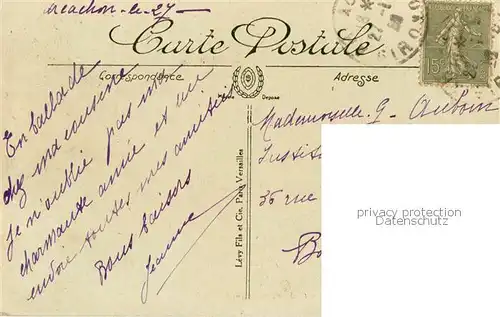 Arcachon-le-27-
Carte Postale
Correspondance
Adresse
En ballade
chez ma cousine
je n'oublie pas ma
charmante amie et lui
envoie toutes mes amitiés
Bons baisers
Jeanne
Lévy Fils et Cie, Paris Versailles
Mademoiselle G. Auboin
Institu
36 rue
Bo
15c
privacy protection
Datenschutz